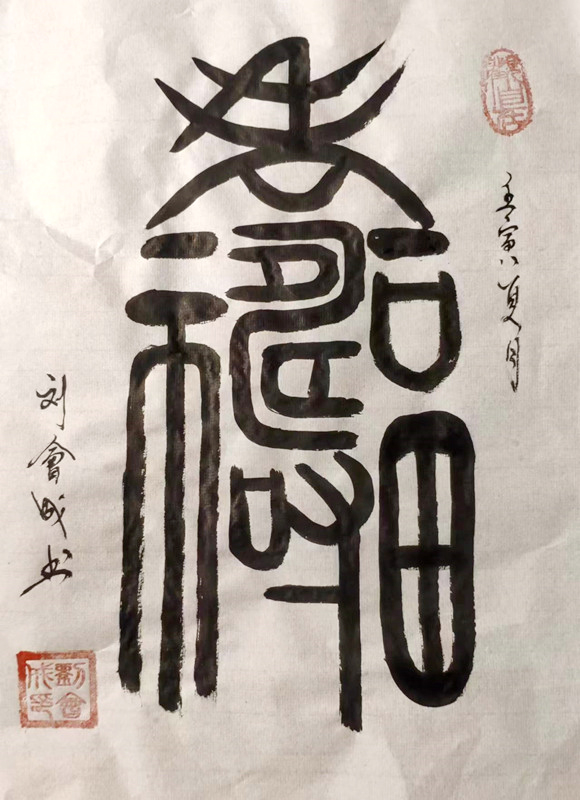 福壽
壬寅夏月
刘會成书
劉會成印